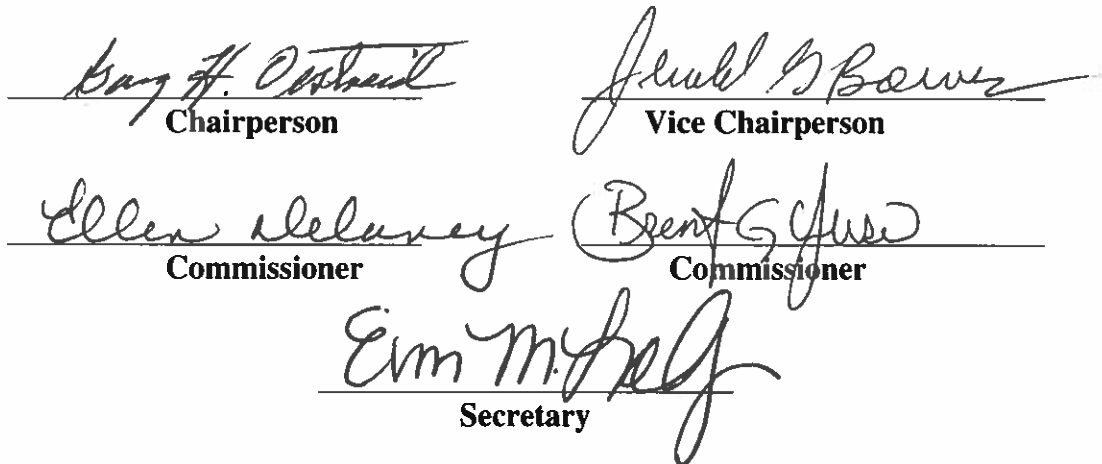 Gary H.
Chairperson
Jerald G Bower
Vice Chairperson
Ellen Delaney
Commissioner
Brent G
Commissioner
Erin M.
Secretary